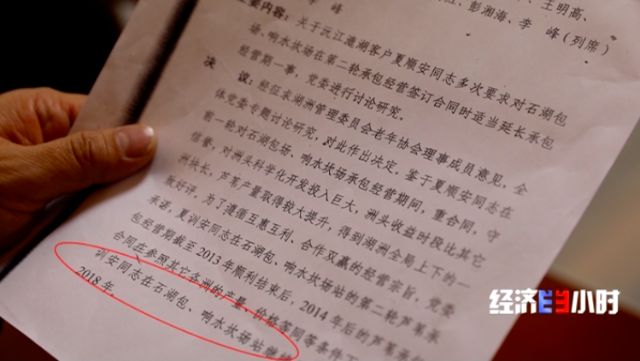 、王明高、
峰
彭湘海、李 峰(列席)
主要内容:关于沅江漉湖客户夏顺安同志多次要求对石湖包
、响水坎场在第二轮承包经营签订合同时适当延长承包
经营期一事,党委进行讨论研究。
决 议:经征求湖洲管理委员会老年协会理事成员意见,全
体党委专题讨论研究,对此作出决定。鉴于夏顺安同志在
第一轮对石湖包场、响水坎场承包经营期间,重合同,守
信誉,对洲头科学化开发投入巨大,洲头收益时段比其它
洲长,芦苇产量取得较大提升,得到湖洲全局上下的一
好评,为了遵循互惠互利、合作双赢的经营宗旨,党委
承诺,夏训安同志在石湖包、响水坎场站的第二轮芦苇承
包经营期截至2013年顺利结束后,2014年后的芦苇承
合同在参照其它各洲的产量、价格等同等条件下
训安同志在石湖包、响水坎场站继续
2018年。
经济半小时